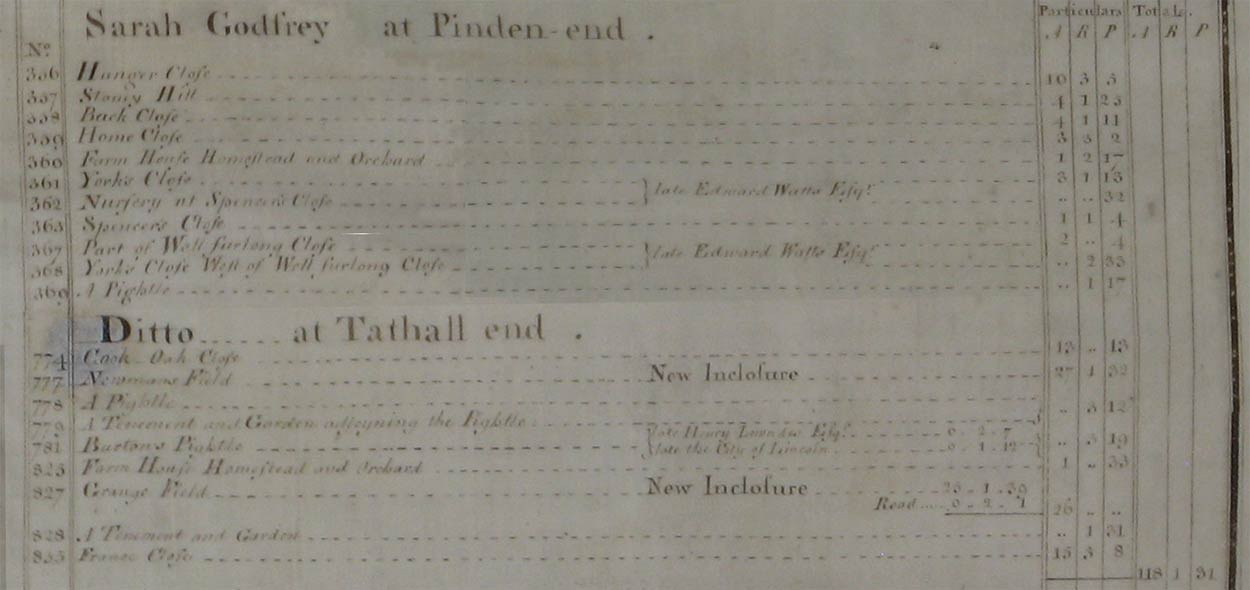 Sarah Godfrey at Pinden-end .
Particulars Totals.
No. A R P A R P
356 Hanger Close 10 3 5
357 Stoney Hill 4 1 25
358 Back Close 4 1 11
359 Home Close 3 3 2
360 Farm House Homestead and Orchard 1 2 17
361 York's Close 3 1 13
late Edward Watts Esqr.
362 Nursery at Spencer's Close .. .. 32
363 Spencer's Close 1 1 4
367 Part of Well furlong Close 2 .. 4
late Edward Watts Esqr.
368 York's Close West of Well furlong Close .. 2 33
369 A Pightle .. 1 17
Ditto at Tathall end .
774 Cook Oak Close 13 .. 13
777 Newmans Field New Inclosure 27 1 32
778 A Pightle
779 A Tenement and Garden adjoyning the Pightle .. 3 12
781 Burton's Pightle late Henry Lowndes Esqr. 0 . 2 . 7
late the City of Lincoln 0 . 1 . 12 .. 3 19
825 Farm House Homestead and Orchard 1 .. 33
827 Grange Field New Inclosure 25 . 1 . 39
Road 0 . 2 . 1 26 .. ..
828 A Tenement and Garden .. 1 31
833 France Close 15 3 8
118 1 31